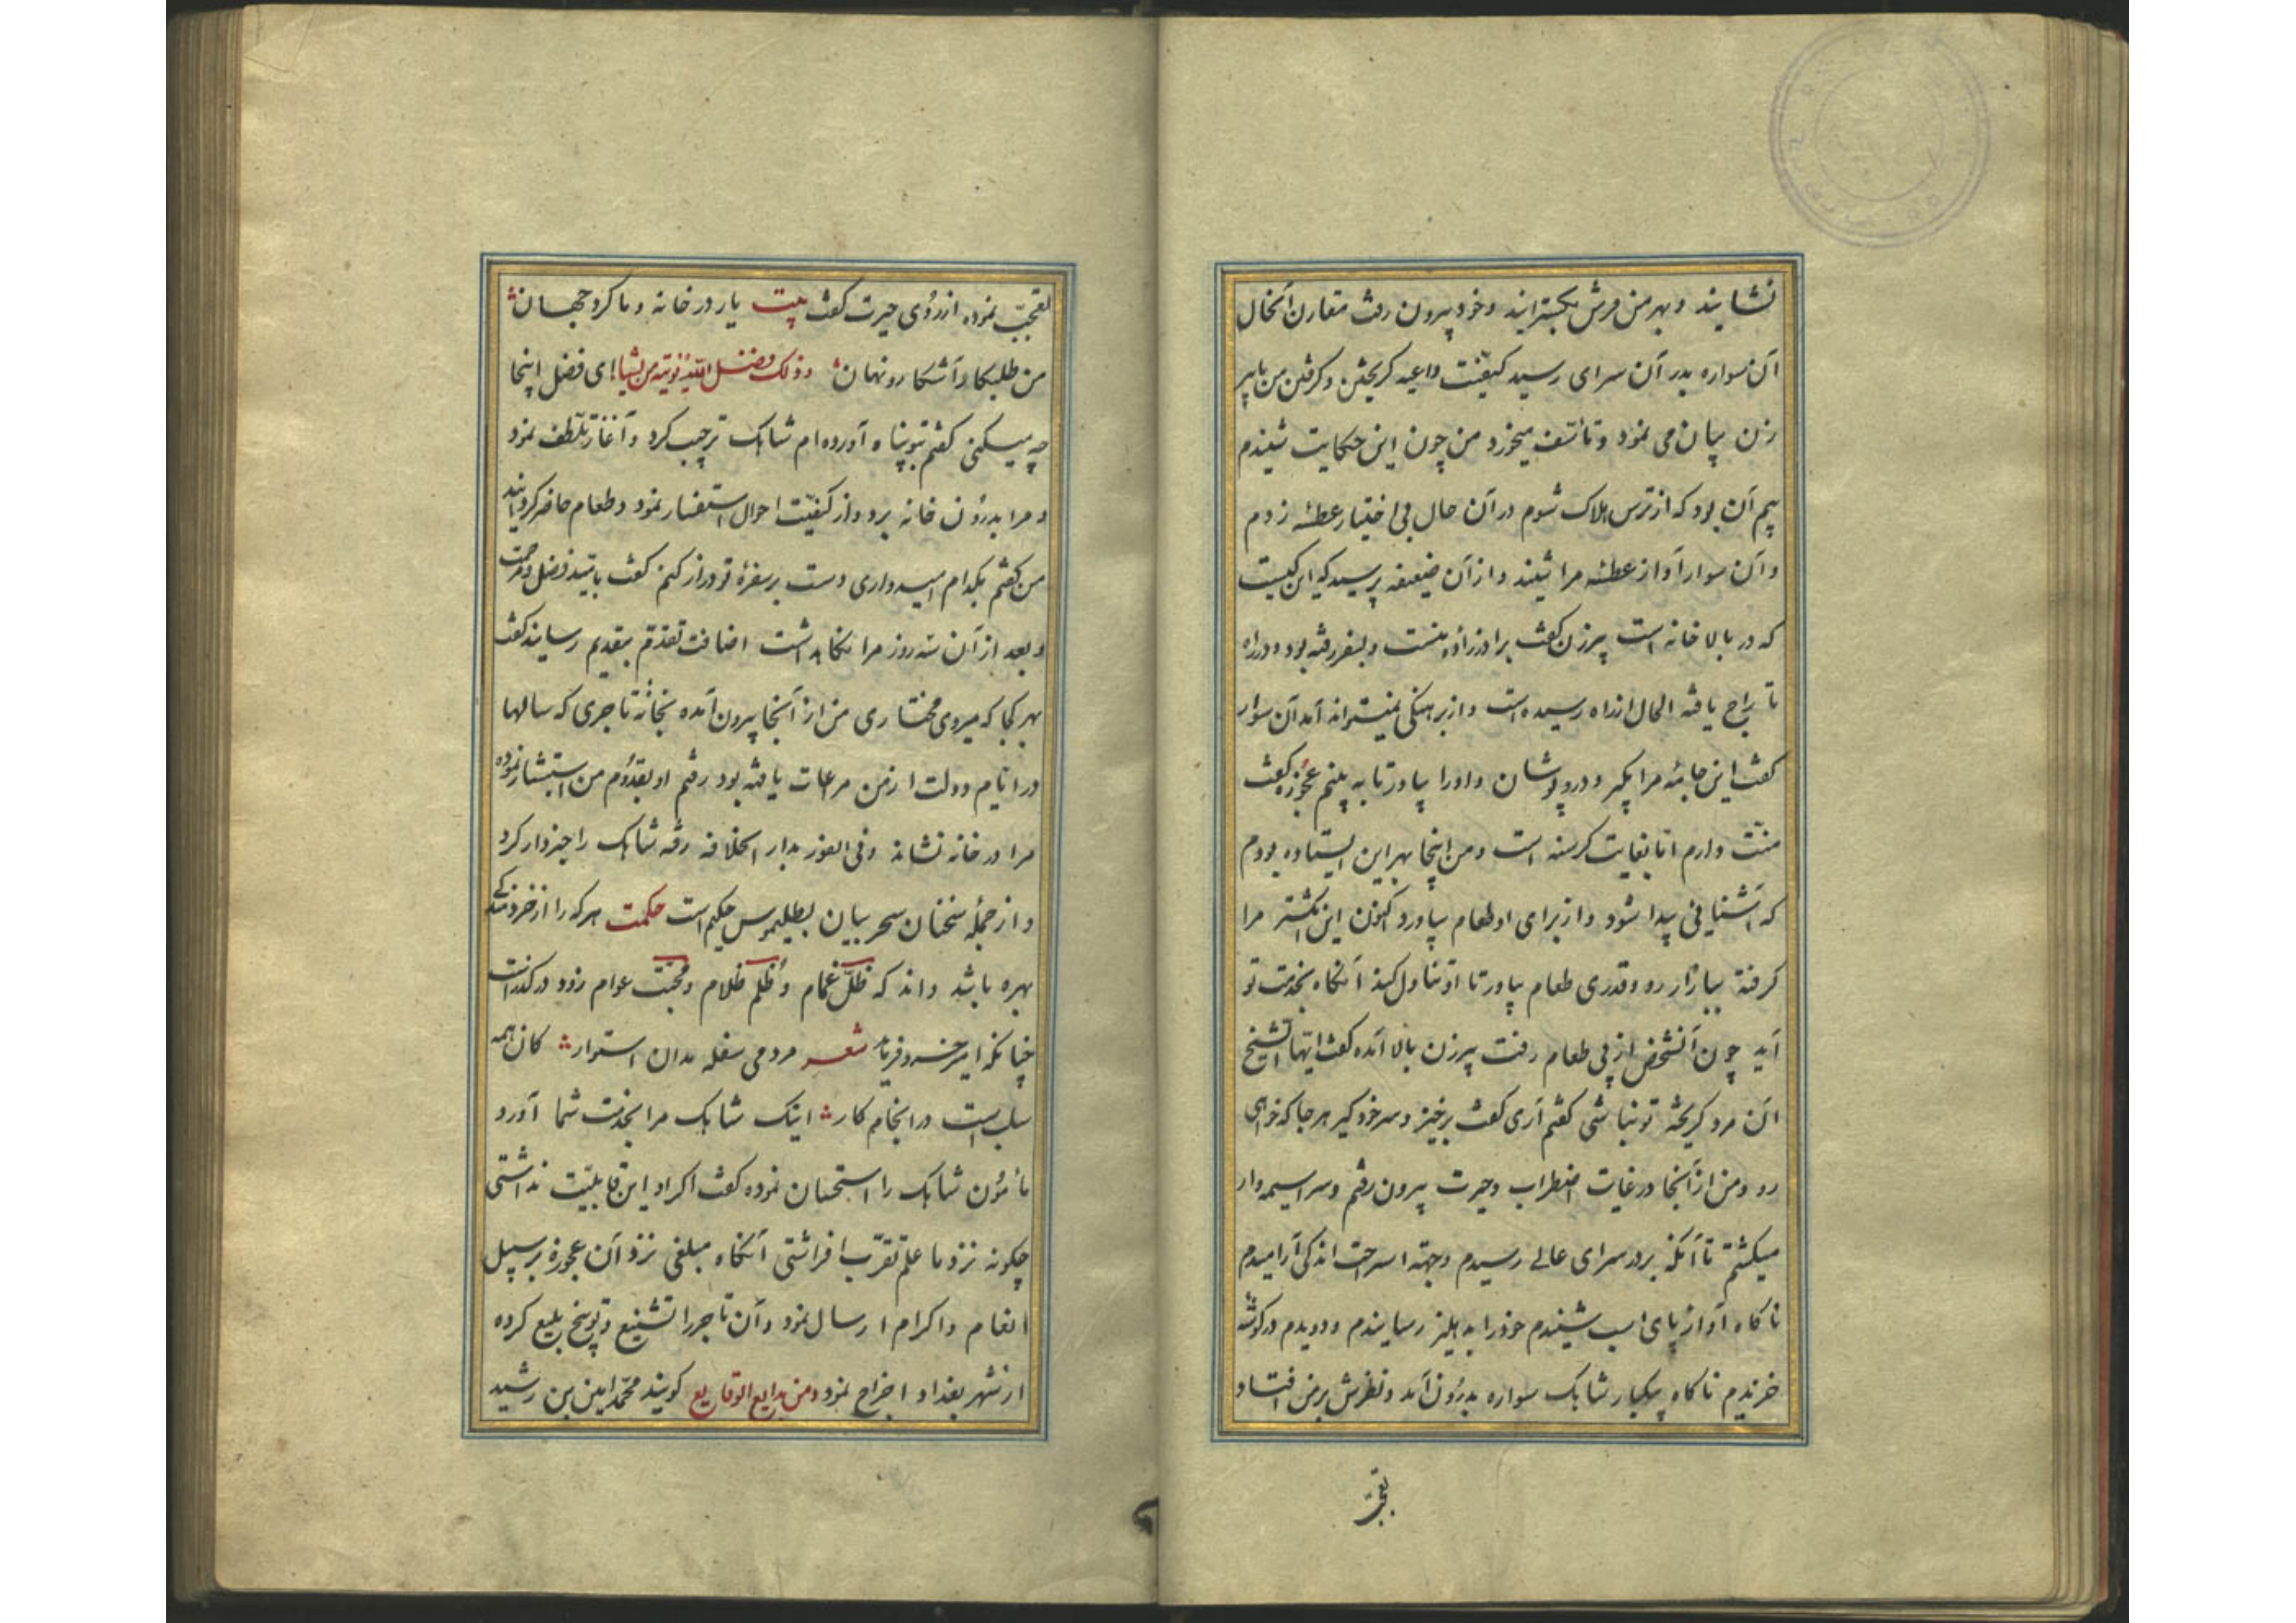 نشایند و بهر من فرش بگسترانید و خود بیرون رفت مقارن آنحال
آن سواره بدر آن سرای رسید کیفیت داعیه گریختن و گرفتن من با پیر
زن بیان می نمود و تأسف میخورد من چون این حکایت شنیدم
بیم آن بود که از ترس هلاک شوم در آن حال بی اختیار عطسه زدم
و آن سوار آواز عطسه مرا شنید و از آن ضعیفه پرسید که این کیست
که در بالا خانه است پیرزن گفت برادرزاده منست و بسفر رفته بود و در راه
تاراج یافته الحال از راه رسیده است و از برهنگی نمیتواند آمد آن سوار
گفت این جامه مرا بگیر و در و پوشان و او را بیاور تا به بینم عجوزه گفت
منت دارم اما بغایت گرسنه است و من اینجا بهر این ایستاده بودم
که آشنایی پیدا شود و از برای او طعام بیاورد اکنون این انگشتر مرا
گرفته ببازار رو و قدری طعام بیاور تا او تناول کند آنگاه بخدمت تو
آید چون آنشخص از پی طعام رفت پیرزن بالا آمده گفت ایها الشیخ
آن مرد گریخته تو نباشی گفتم آری گفت برخیز و سر خود گیر هر جا که خواهی
رو و من از آنجا در غایت اضطراب و حیرت بیرون رفتم و سراسیمه وار
میگشتم تا آنکه بر در سرای عالی رسیدم و جهة استراحت اندکی آرامیدم
ناگاه آواز پای اسب شنیدم خود را بدهلیز رسانیدم و دویدم در گوشه
خزیدم ناگاه بیکبار شابک سواره بدرون آمد و نظرش بر من افتاد
تعجب
تعجب نموده از روی حیرت گفت بیت یار در خانه و ما گرد جهان
من طلبکار آشکار و نهان و ذلک فضل الله یؤتیه من یشا ای فضل اینجا
چه میکنی گفتم بتو پناه آورده ام شابک ترحیب کرد و آغاز تلطف نمود
و مرا بدرون خانه برد و از کیفیت احوال استفسار نمود و طعام حاضر گردانید
من گفتم بکدام امیدواری دست بر سفرهٔ تو دراز کنم گفت بامید فضل و مرحمت
و بعد از آن سه روز مرا نگاهداشت اضافت تقدم بتقدیم رسانید گفت
بهر کجا که میروی مختاری من از آنجا بیرون آمده بخانه تاجری که سالها
در ایام دولت از من مرعات یافته بود رفتم او بقدوم من استبشار نموده
مرا در خانه نشاند و فی الفور بدار الخلافه رفته شابک را خبردار کرد
و از جمله سخنان سحر بیان بطلیموس حکیم است حکمت هر که را از خردمندی
بهره باشد داند که ظل غمام و ظلم ظلام و محبت عوام زود در گذر است
چنانکه امیر خسرو فرماید شعر مردمی سفله مدان استوار کان همه
سلب است در انجام کار اینک شابک مرا بخدمت شما آورد
مأمون شابک را استحسان نموده گفت اگر او این قابلیت نداشتی
چگونه نزد ما علم تقرب افراشتی آنگاه مبلغی نزد آن عجوزه بر سبیل
انعام و اکرام ارسال نمود و آن تاجر را تشنیع و توبیخ بلیغ کرده
از شهر بغداد اخراج نمود و من بدایع الوقایع گویند محمد امین بن رشید